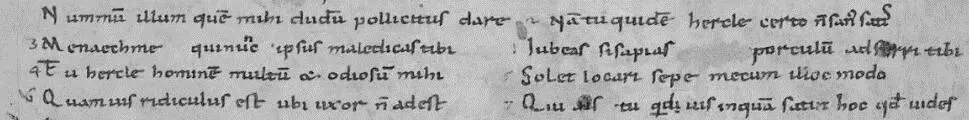 Nummū illum quē mihi dudū pollicitus dare 2 Nā tu quidē hercle certo n̄ san' satis
3 Menaechme quinūc ipsus maledicas tibi : Iubeas si sapias porculū adferri tibi
4 Tu hercle hominē multū & odiosū mihi 5 Solet iocari sepe mecum illoc modo
6 Quamuis ridiculus est ubi uxor n̄ adest 7 Qui ais tu qd uis inquā satin hoc qd uides